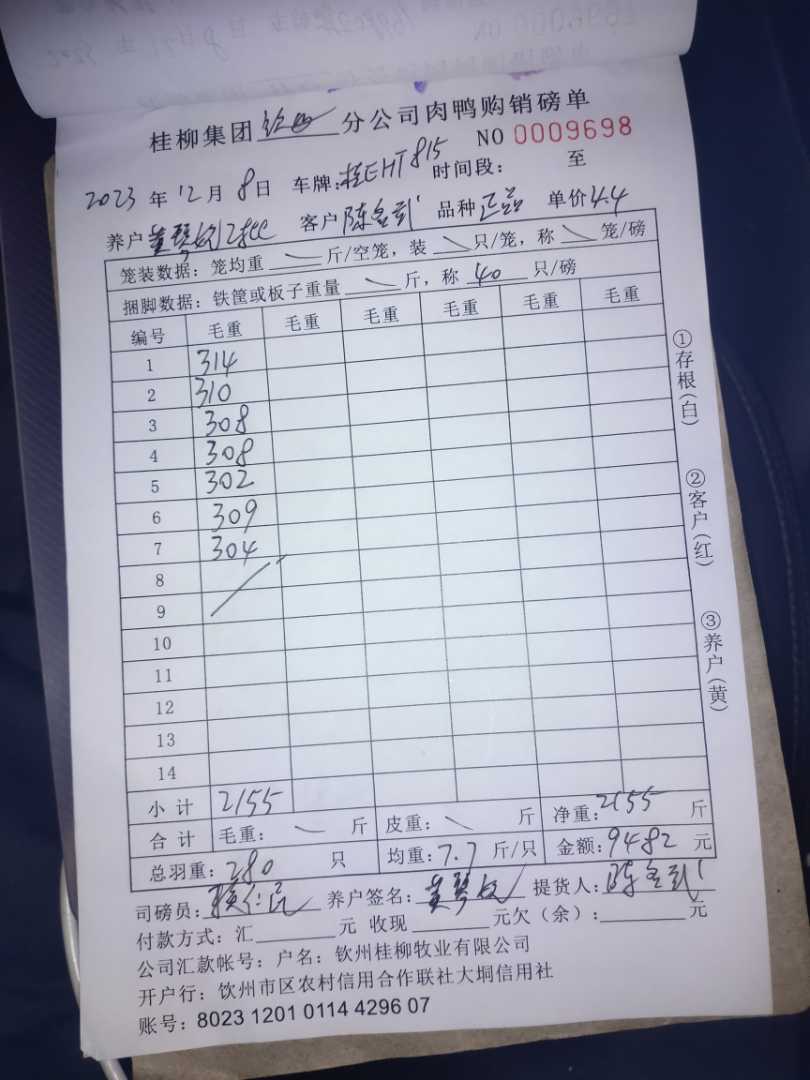 桂柳集团 分公司肉鸭购销磅单
NO 0009698
2023 年 12 月 8 日 车牌:桂EHT815 时间段: 至
养户 黄琴 客户 陈 品种 正品 单价 4.4
笼装数据: 笼均重 斤/空笼, 装 只/笼, 称 笼/磅
捆脚数据: 铁筐或板子重量 斤, 称 40 只/磅
编号 毛重 毛重 毛重 毛重 毛重 毛重
1 314
2 310
3 308
4 308
5 302
6 309
7 304
8
9
10
11
12
13
14
小计 2155
合计 毛重: 斤 皮重: 斤 净重: 2155 斤
总羽重: 280 只 均重: 7.7 斤/只 金额: 9482 元
司磅员: 养户签名: 黄琴 提货人: 陈
付款方式: 汇 元 收现 元欠(余): 元
公司汇款帐号: 户名: 钦州桂柳牧业有限公司
开户行: 饮州市区农村信用合作联社大垌信用社
账号: 8023 1201 0114 4296 07
①存根(白)
②客户(红)
③养户(黄)